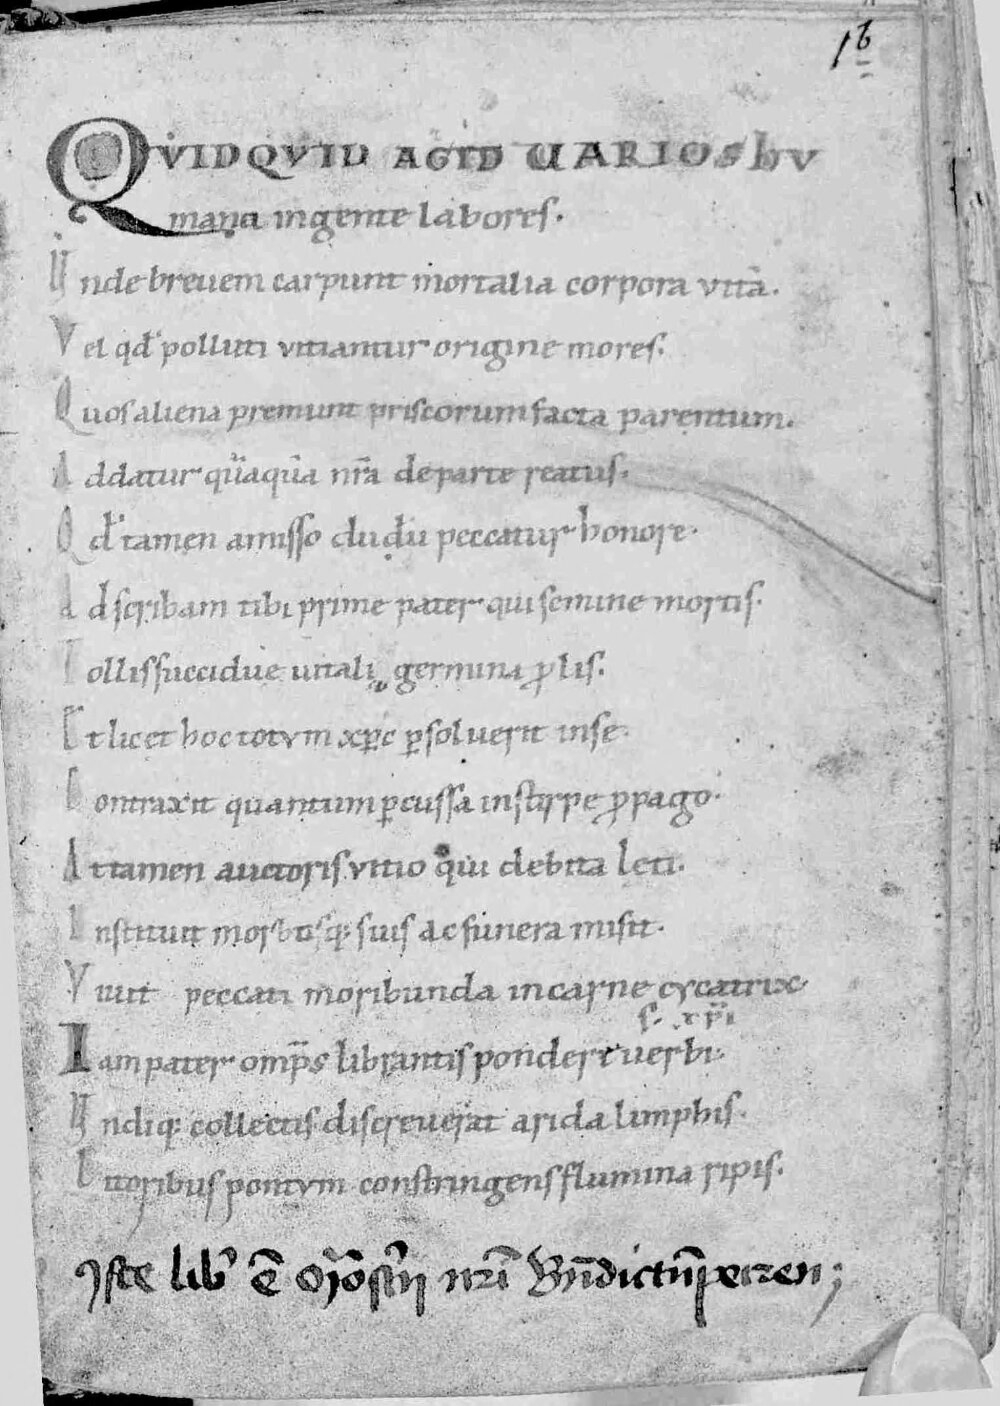 1b
QVIDQVID AGID UARIOS hV
mana ingente labores.
Unde breuem carpunt mortalia corpora vitā.
Vel qd' polluti vitiantur origine mores.
Quos aliena premunt priscorum facta parentum.
Addatur quāquā nr̄a de parte reatus.
Qd' tamen amisso dudū peccatur honore.
Adscribam tibi prime pater qui semine mortis.
Tollis succiduę uitalis germina ꝓlis.
Et licet hoc totvm xp̄c ꝑsoluerit in se.
Contraxit quantum ꝑcussa in stirpe ꝓpago.
Attamen auctoris vitio qui debita leti.
Instituit morbisq; suis ac funera misit.
Viuit peccati moribunda in carne cycatrix.
s. xp̄i
Iam pater omp̄s librantis pondere uerbi.
Undiq; collectis discreuerat arida limphis.
Litoribus pontvm constringens flumina ripis.
Iste lib' ē